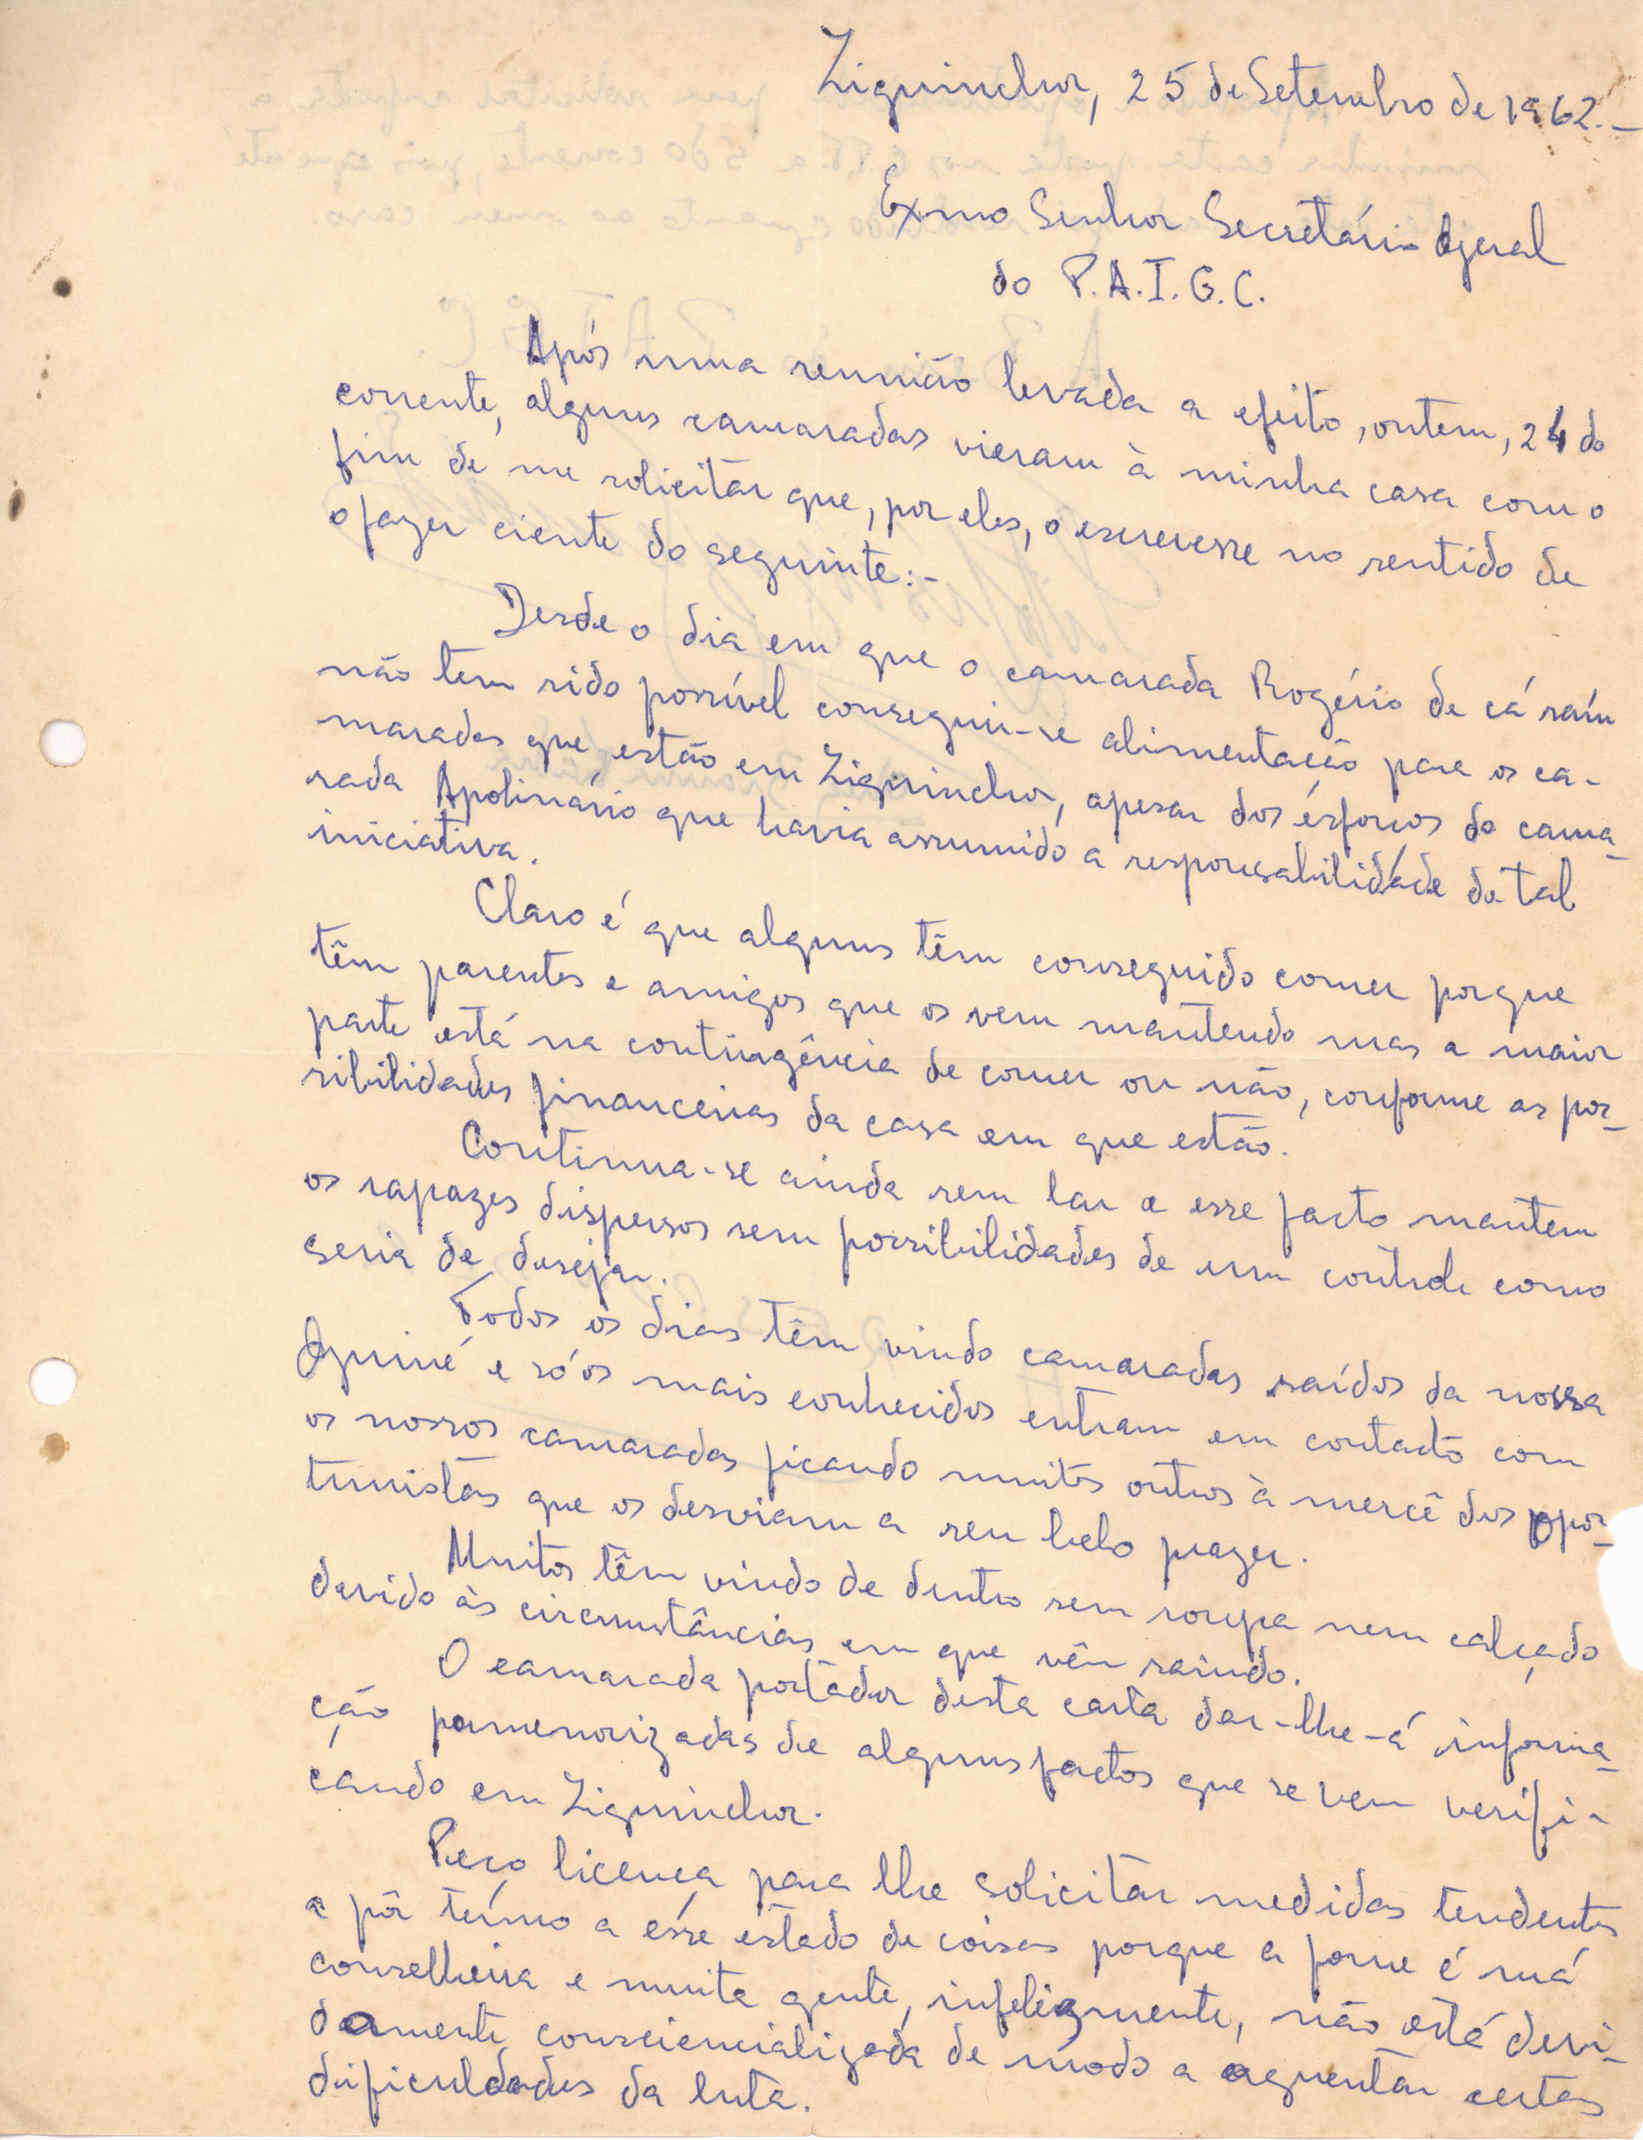 Ziguinchor, 25 de Setembro de 1962.-
Exmo Senhor Secretário Geral
do P.A.I.G.C.
Após uma reunião levada a efeito, ontem, 24 do
corrente, alguns camaradas vieram à minha casa com o
fim de me solicitar que, por eles, o escrevesse no sentido de
o fazer ciente do seguinte:-
Desde o dia em que o camarada Rogério de cá saíu
não tem sido possível conseguir-se alimentação para os ca-
maradas que estão em Ziguinchor, apesar dos esforços do cama-
rada Apolinário que havia assumido a responsabilidade de tal
iniciativa.
Claro é que alguns têm conseguido comer porque
têm parentes e amigos que os vem mantendo mas a maior
parte está na contingência de comer ou não, conforme as pos-
sibilidades financeiras da casa em que estão.
Continua-se ainda sem lar e esse facto mantem
os rapazes dispersos sem possibilidades de um controle como
seria de desejar.
Todos os dias têm vindo camaradas saídos da nossa
Guiné e só os mais conhecidos entram em contacto com
os nossos camaradas ficando muitos outros à mercê dos opor-
tunistas que os desviam a seu belo prazer.
Muitos têm vindo de dentro sem roupa nem calçado
devido às circunstâncias em que vên saindo.
O camarada portador desta carta dar-lhe-á informa-
ção pormenorizadas de alguns factos que se vem verifi-
cando em Ziguinchor.
Peço licença para lhe solicitar medidas tendentes
a pôr têrmo a esse estado de coisas porque a fome é má
conselheira e muita gente, infelizmente, não está devi-
damente consciencializada de modo a aguentar certas
dificuldades da luta.